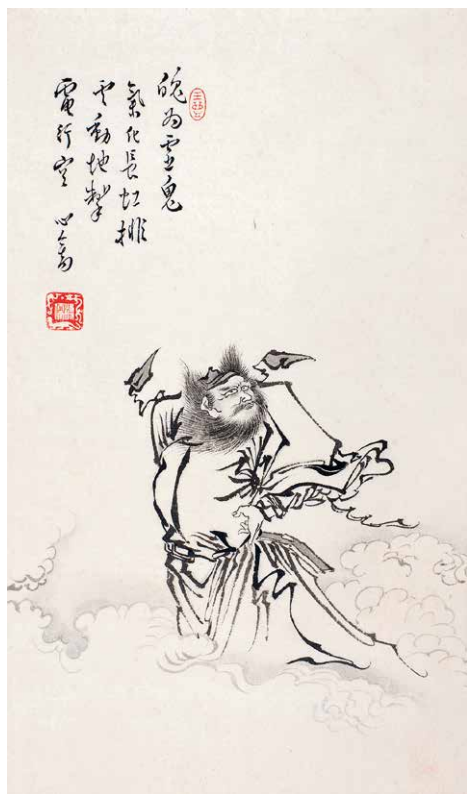 魄為靈鬼
氣化長虹排
雲動地掣
電行空 心畬